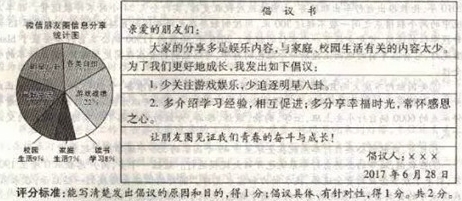 微信朋友圈信息分享
统计图
各类自拍
游戏推广
22%
校园
生活9%
家庭
生活7%
读书
学习8%
倡 议 书
亲爱的朋友们:
大家的分享多是娱乐内容,与家庭、校园生活有关的内容太少。
为了我们更好地成长,我发出如下倡议:
1. 少关注游戏娱乐,少追逐明星八卦。
2. 多介绍学习经验,相互促进;多分享幸福时光,常怀感恩
之心。
让朋友圈见证我们青春的奋斗与成长!
倡议人:×××
2017 年 6 月 28 日
评分标准:能写清楚发出倡议的原因和目的,得 1 分;倡议具体、有针对性,得 1 分。共 2 分。